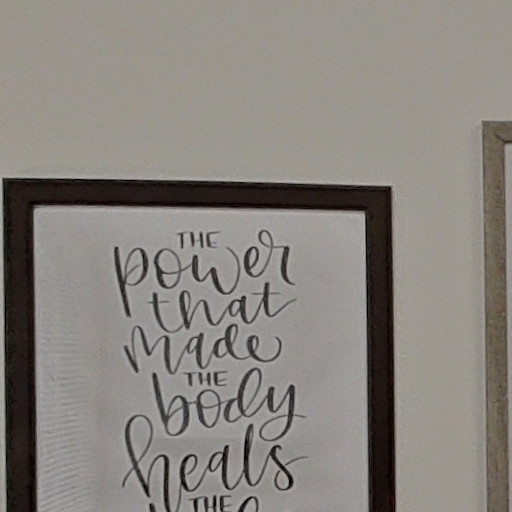 THE
power
that
made
THE
body
heals
THE